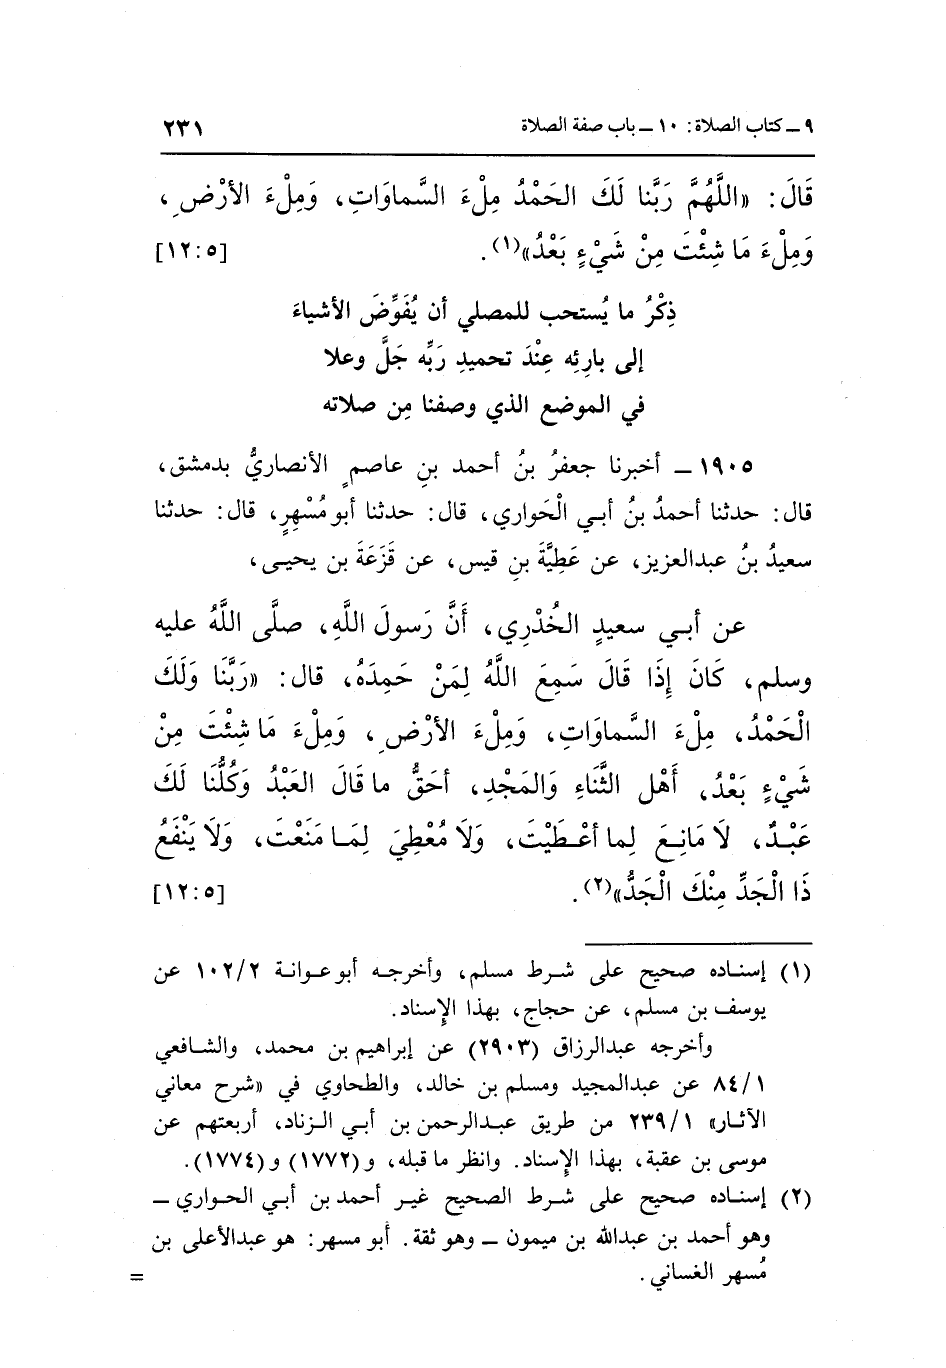 ٩ ـ كتاب الصلاة: ١٠ ـ باب صفة الصلاة ٢٣١
قَالَ: «اللَّهُمَّ رَبَّنا لَكَ الحَمْدُ مِلْءَ السَّماوَاتِ، وَمِلْءَ الأرْضِ،
وَمِلْءَ مَا شِئْتَ مِنْ شَيْءٍ بَعْدُ»(١). [١٢:٥]
ذِكْرُ ما يُستحب للمصلي أن يُفَوِّضَ الأشياءَ
إلى بارِئِه عِنْدَ تحميدِ رَبِّه جَلَّ وعلا
في الموضع الذي وصفنا مِن صلاته
١٩٠٥ ـ أخبرنا جعفرُ بنُ أحمد بنِ عاصمٍ الأنصاريُّ بدمشق،
قال: حدثنا أحمدُ بنُ أبي الْحَواري، قال: حدثنا أبو مُسْهِرٍ، قال: حدثنا
سعيدُ بنُ عبدالعزيز، عن عَطِيَّةَ بنِ قيس، عن قَزَعَةَ بن يحيى،
عن أبي سعيدٍ الخُدْرِي، أنَّ رَسولَ اللَّهِ، صلَّى اللَّهُ عليه
وسلم، كَانَ إذَا قَالَ سَمِعَ اللَّهُ لِمَنْ حَمِدَهُ، قال: «رَبَّنَا وَلَكَ
الْحَمْدُ، مِلْءَ السَّماوَاتِ، وَمِلْءَ الأرْضِ، وَمِلْءَ مَا شِئْتَ مِنْ
شَيْءٍ بَعْدُ، أَهْل الثَّناءِ وَالمَجْدِ، أحَقُّ ما قَالَ العَبْدُ وَكُلُّنا لَكَ
عَبْدٌ، لاَ مَانِعَ لِما أعْطَيْتَ، وَلاَ مُعْطِيَ لِمَا مَنَعْتَ، وَلاَ يَنْفَعُ
ذَا الْجَدِّ مِنْكَ الْجَدُّ»(٢). [١٢:٥]
(١) إسناده صحيح على شرط مسلم، وأخرجه أبو عوانة ١٠٢/٢ عن
يوسف بن مسلم، عن حجاج، بهذا الإسناد.
وأخرجه عبدالرزاق (٢٩٠٣) عن إبراهيم بن محمد، والشافعي
٨٤/١ عن عبدالمجيد ومسلم بن خالد، والطحاوي في «شرح معاني
الآثار» ٢٣٩/١ من طريق عبدالرحمن بن أبي الزناد، أربعتهم عن
موسى بن عقبة، بهذا الإسناد. وانظر ما قبله، و (١٧٧٢) و (١٧٧٤).
(٢) إسناده صحيح على شرط الصحيح غير أحمد بن أبي الحواري ـ
وهو أحمد بن عبدالله بن ميمون ـ وهو ثقة. أبو مسهر: هو عبدالأعلى بن
مُسهر الغساني. =